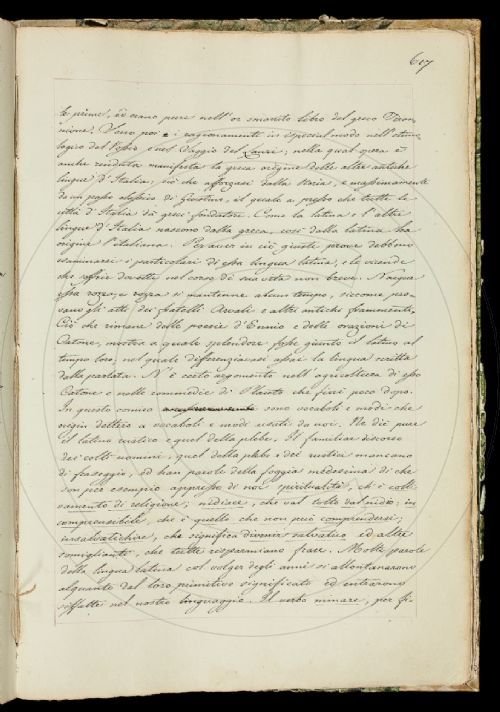 617
te prime, ed erano pure nell'or smarrito libro del greco
Sono poi i ragionamenti in especial modo nell'etimo-
logico del Vossio e nel Saggio del Lanzi, nella qual opera è
anche renduta manifesta la greca origine delle altre antiche
lingue d'Italia; ciò che afforzasi dalla storia, e massimamente
da un passo di Giustino, il quale a presso che tutte le
città d'Italia dà greci fondatori. Come la latina e l'altre
lingue d'Italia nascono dalla greca, così dalla latina ha
origine l'italiana. Per aver in ciò giuste prove debbono
esaminarsi i particolari di essa lingua latina, e le vicende
che soffrir dovette nel corso di sua vita non breve. Nacque
essa rozza, e rozza si mantenne alcun tempo, siccome pro-
vano gli atti dei fratelli Arvali e altri antichi frammenti.
Ciò che rimane delle poesie d'Ennio e delle orazioni di
Catone, mostra a quale splendore fosse giunto il latino al
tempo loro; nel quale differenziavasi assai la lingua scritta
dalla parlata. N'è certo argomento nell'agricoltura di esso
Catone e nelle commedie di Plauto che fiorì poco dopo.
In questo comico sono vocaboli e modi che
origin dettero a vocaboli e modi usati da noi. Ne dié pure
il latino rustico e quel della plebe. Il familiar discorso
dei colti uomini, quel della plebe e dei rustici mancano
di fraseggio, ed han parole della foggia medesima di che
son per esempio appresso di noi spiritualità, ch'è colti-
vamento di religione; nidiace, che val tolto dal nidio; in-
comprensibile, che è quello che non può comprendersi;
insalvatichire, che significa divenir salvatico ed altre
somiglianti, che tutte risparmiano frase. Molte parole
della lingua latina col volger degli anni si allontanarono
alquanto dal loro primitivo significato ed entrarono
siffatte nel nostro linguaggio. Il verbo minare, per si-